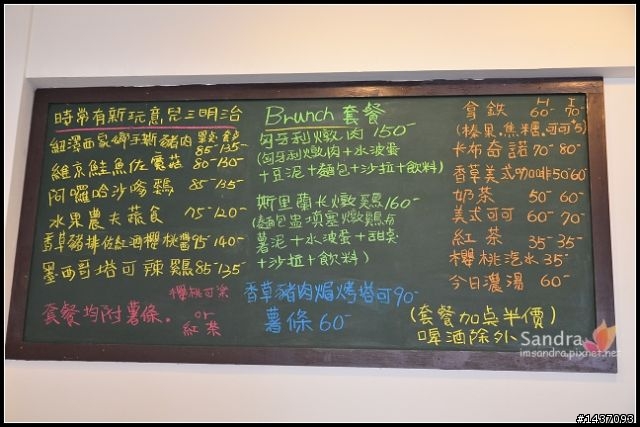 時常有新玩意兒三明治
豬肉 85-135-
維京鮭魚佐蘑菇 80-130-
阿囉哈沙嗲雞 85-135-
水果農夫蔬食 75-120-
香草豬排佐紅酒櫻桃醬 95-140-
墨西哥塔可辣雞 85-135-
櫻桃可樂
套餐均附薯條。or
紅茶
Brunch 套餐
匈牙利燉肉 150-
(匈牙利燉肉+水波蛋
+豆泥+麵包+沙拉+飲料)
斯里蘭卡燉雞 160-
(麵包盅填塞燉雞與
薯泥+水波蛋+甜點
+沙拉+飲料)
香草豬肉焗烤塔可 90-
薯條 60-
H I
拿鐵 60- 70-
(榛果.焦糖.可可 5)
卡布奇諾 70- 80-
香草美式咖啡 50- 60-
奶茶 50- 60-
美式可可 60- 70-
紅茶 35- 35-
櫻桃汽水 35-
今日濃湯 60-
(套餐加點半價)
啤酒除外
Sandra
imsandra.pixnet.net
#1437093